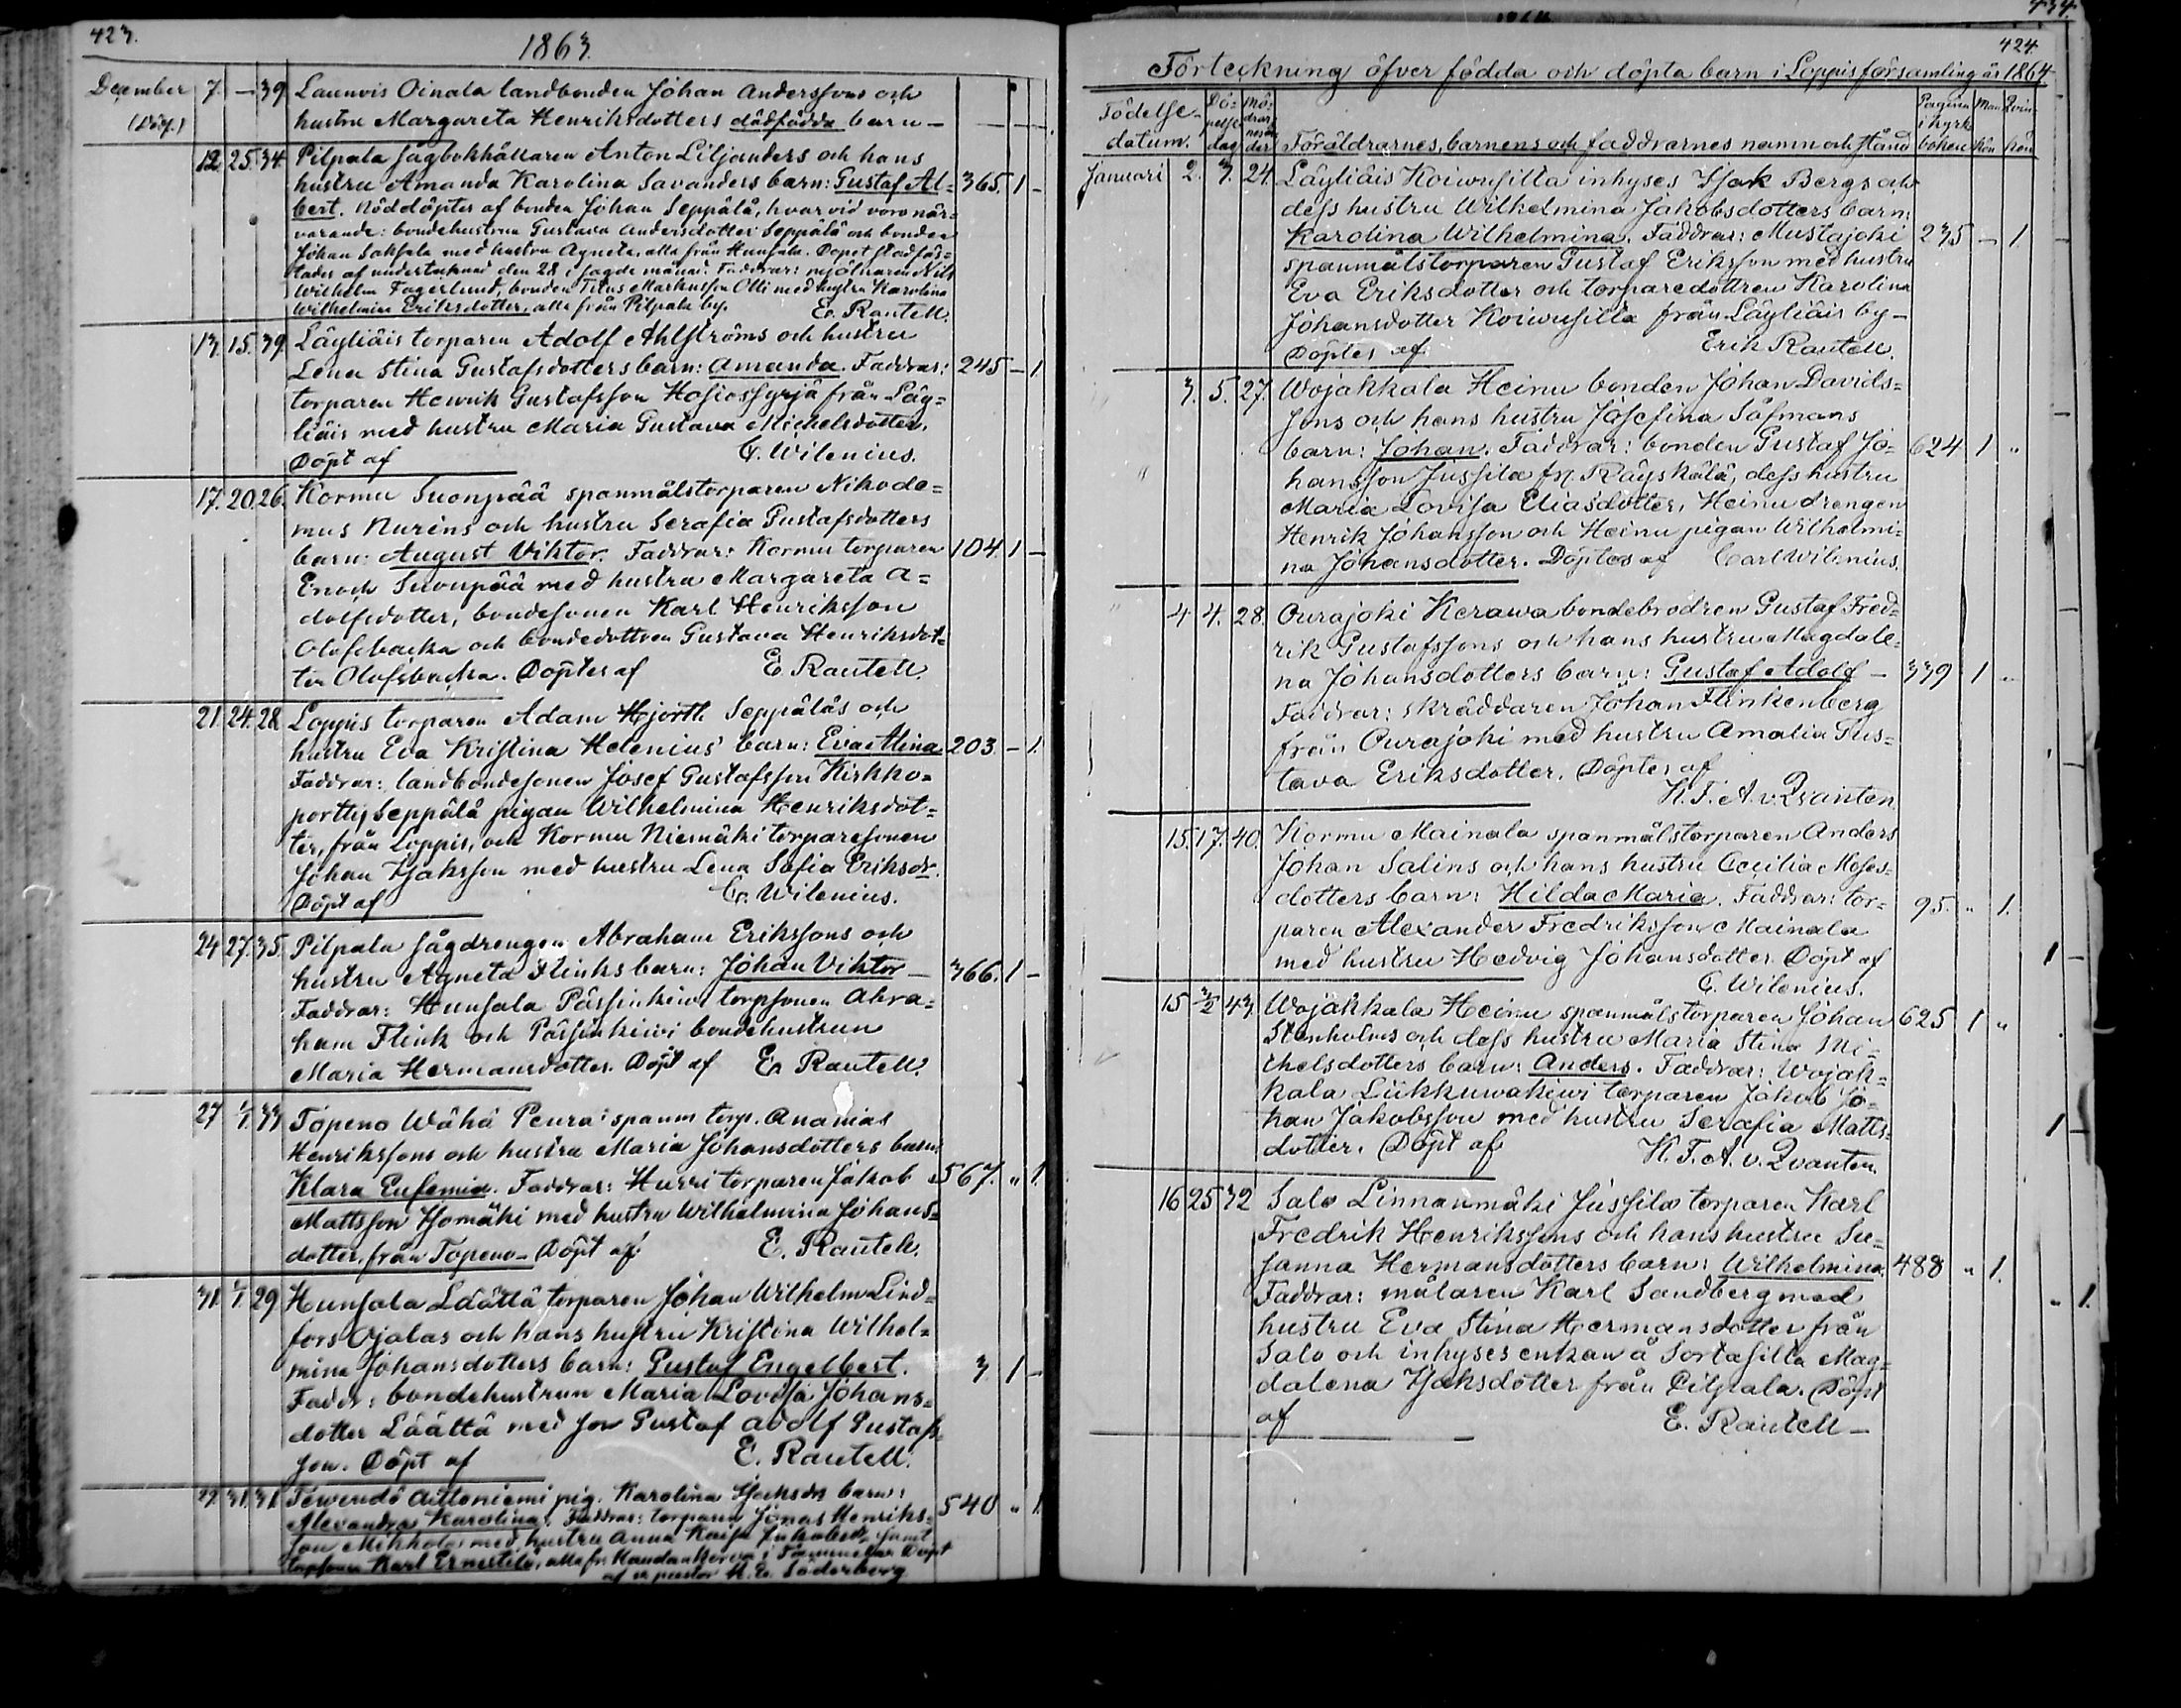 423.
1863.
December 7. — 39 Launois Oinala landbonden Johan Anderssons och
(Döpf.) hustru Margareta Henriksdotters dödfödda barn —
12 25. 34. Pilpala sågbokhållaren Anton Liljanders och hans
hustru Amanda Karolina Savanders barn: Gustaf Al= 365. 1 –
bert. Nöddöptes af bonden Johan Seppälä, hvarvid voro när=
varande: bondehustrun Gustava Andersdotter Seppälä och bonden
Johan Saksala med hustru Agneta, alla från Hunsala. Dopet stadfäs=
tades af undertecknad den 28 i sagde månad. Faddrar: mjölnaren Nils
Wilhelm Fagerlund, bonden Titus Markusson Olli med hustru Karolina
Wilhelmina Eriksdotter, alla från Pilpala by. E. Rautell.
13. 15. 39. Läyliäis torparen Adolf Ahlströms och hustru
Lena Stina Gustafsdotters barn: Amanda. Faddrar: 245 – 1
torparen Henrik Gustafsson Hosiossyrjä från Läy=
liäis med hustru Maria Gustava Michelsdotter.
Döpt af C. Wilenius.
17. 20. 26. Kormu Suonpää spanmålstorparen Nikode=
mus Nurins och hustru Serafia Gustafsdotters
barn: August Viktor. Faddrar: Kormu torparen 104. 1 –
Enoch Suonpää med hustru Margareta A=
dolfsdotter, bondesonen Karl Henriksson
Olofsbacka och bondedottren Gustava Henriksdot=
ter Olofsbacka. Döptes af E. Rautell.
21. 24. 28. Loppis torparen Adam Hjorth Seppäläs och
hustru Eva Kristina Helenius' barn: Eva Alina 203. – 1.
Faddrar: landbondesonen Josef Gustafsson Kirkko=
portti, Seppälä pigan Wilhelmina Henriksdot=
ter, från Loppis, och Kormu Niemäki torparesonen
Johan Isaksson med hustru Lena Sofia Eriksdr.
Döpt af C. Wilenius.
24 27. 35. Pilpala sågdrengen Abraham Erikssons och
hustru Agneta Flinks barn: Johan Viktor — 366. 1 –
Faddrar: Hunsala Pässinkiwi torpsonen Abra=
ham Flink och Pässinkiwi bondehustrun
Maria Hermansdotter. Döpt af E. Rautell.
27 1/1. 33 Topeno Wähä Peura spanm torp. Ananias
Henrikssons och hustru Maria Johansdotters barn:
Klara Eufemia. Faddrar: Hurri torparen Jakob 567. " 1.
Mattsson Isomäki med hustru Wilhelmina Johans=
dotter, från Topeno — Döpt af E. Rautell.
31. 1/1. 29 Hunsala Läättä torparen Johan Wilhelm Lind=
fors Ojalas och hans hustru Kristina Wilhel=
mina Johansdotters barn: Gustaf Engelbert. 3 1 –
Faddr: bondehustrun Maria Lovisa Johans=
dotter Läättä med son Gustaf Adolf Gustafs=
son. Döpt af E. Rautell.
29. 31. 31. Tewendö Aittoniemi pig. Karolina Isaksdrs barn: 540 " 1.
Alexandra Karolina. Faddrar: torparen Jonas Henriks=
son Mikkola med hustru Anna Kaisa Jakobsdr samt
torpsonen Karl Ernestila, alla fr. i Tammela. Döpt
af v. pastor Söderberg
434.
424.
Förteckning öfver födda och döpta barn i Loppis församling år 1864
Födelse-datum. Dö-pelse dag Mö-drar-nes ål-der Föräldrarnes, barnens och faddrarnes namn och stånd Pagina i kyrk boken Man kön Qvin-kön
Januari 2. 3. 24. Läyliäis Koiwusilta inhyses Isak Bergs och
dess hustru Wilhelmina Jakobsdotters barn:
Karolina Wilhelmina. Faddrar: Mustajoki 235 – 1.
spanmålstorparen Gustaf Eriksson med hustru
Eva Eriksdotter och torparedottren Karolina
Johansdotter Koiwusilta från Läyliäis by —
Döptes af Erik Rautell.
" 3. 5. 27. Wojakkala Heinu bonden Johan Davids=
sons och hans hustru Josefina Säfmans
barn: Johan. Faddrar: bonden Gustaf Jo= 624 1 "
hansson Jussila fr. Räyskälä, dess hustru
Maria Lovisa Eliasdotter, Heinu drengen
Henrik Johansson och Heinu pigan Wilhelmi=
na Johansdotter. Döptes af Carl Wilenius.
" 4 4. 28. Ourajoki Kerawa bondebrodren Gustaf Fred=
rik Gustafssons och hans hustru Magdale=
na Johansdotters barn: Gustaf Adolf — 339 1 "
Faddrar: skräddaren Johan Flinkenberg
från Ourajoki med hustru Amalia Gus=
tava Eriksdotter. Döptes af
K. F. A. v. Qvanten
15. 17. 40. Kormu Mainala spanmålstorparen Anders
Johan Salins och hans hustru Cecilia Moses=
dotters barn: Hilda Maria. Faddrar: tor= 95. " 1.
paren Alexander Fredriksson Mainala
med hustru Hedvig Johansdotter. Döpt af
C. Wilenius.
15 3/2 43 Wojakkala Heinu spanmålstorparen Johan 625 1 "
Stenholms och dess hustru Maria Stina Mi=
chelsdotters barn: Anders. Faddrar: Wojak=
kala Liikkuwakiwi torparen Jakob Jo=
han Jakobsson med hustru Serafia Matts=
dotter. Döpt af K. F. A. v. Qvanten.
16 25 32 Salo Linnanmäki Jussila torparen Karl
Fredrik Henrikssons och hans hustru Su=
sanna Hermansdotters barn: Wilhelmina. 488 " 1.
Faddrar: målaren Karl Sandberg med
hustru Eva Stina Hermansdotter från
Salo och inhyses enkan å Sortasilta Mag=
dalena Isaksdotter från Pilpala. Döpt
af E. Rautell —